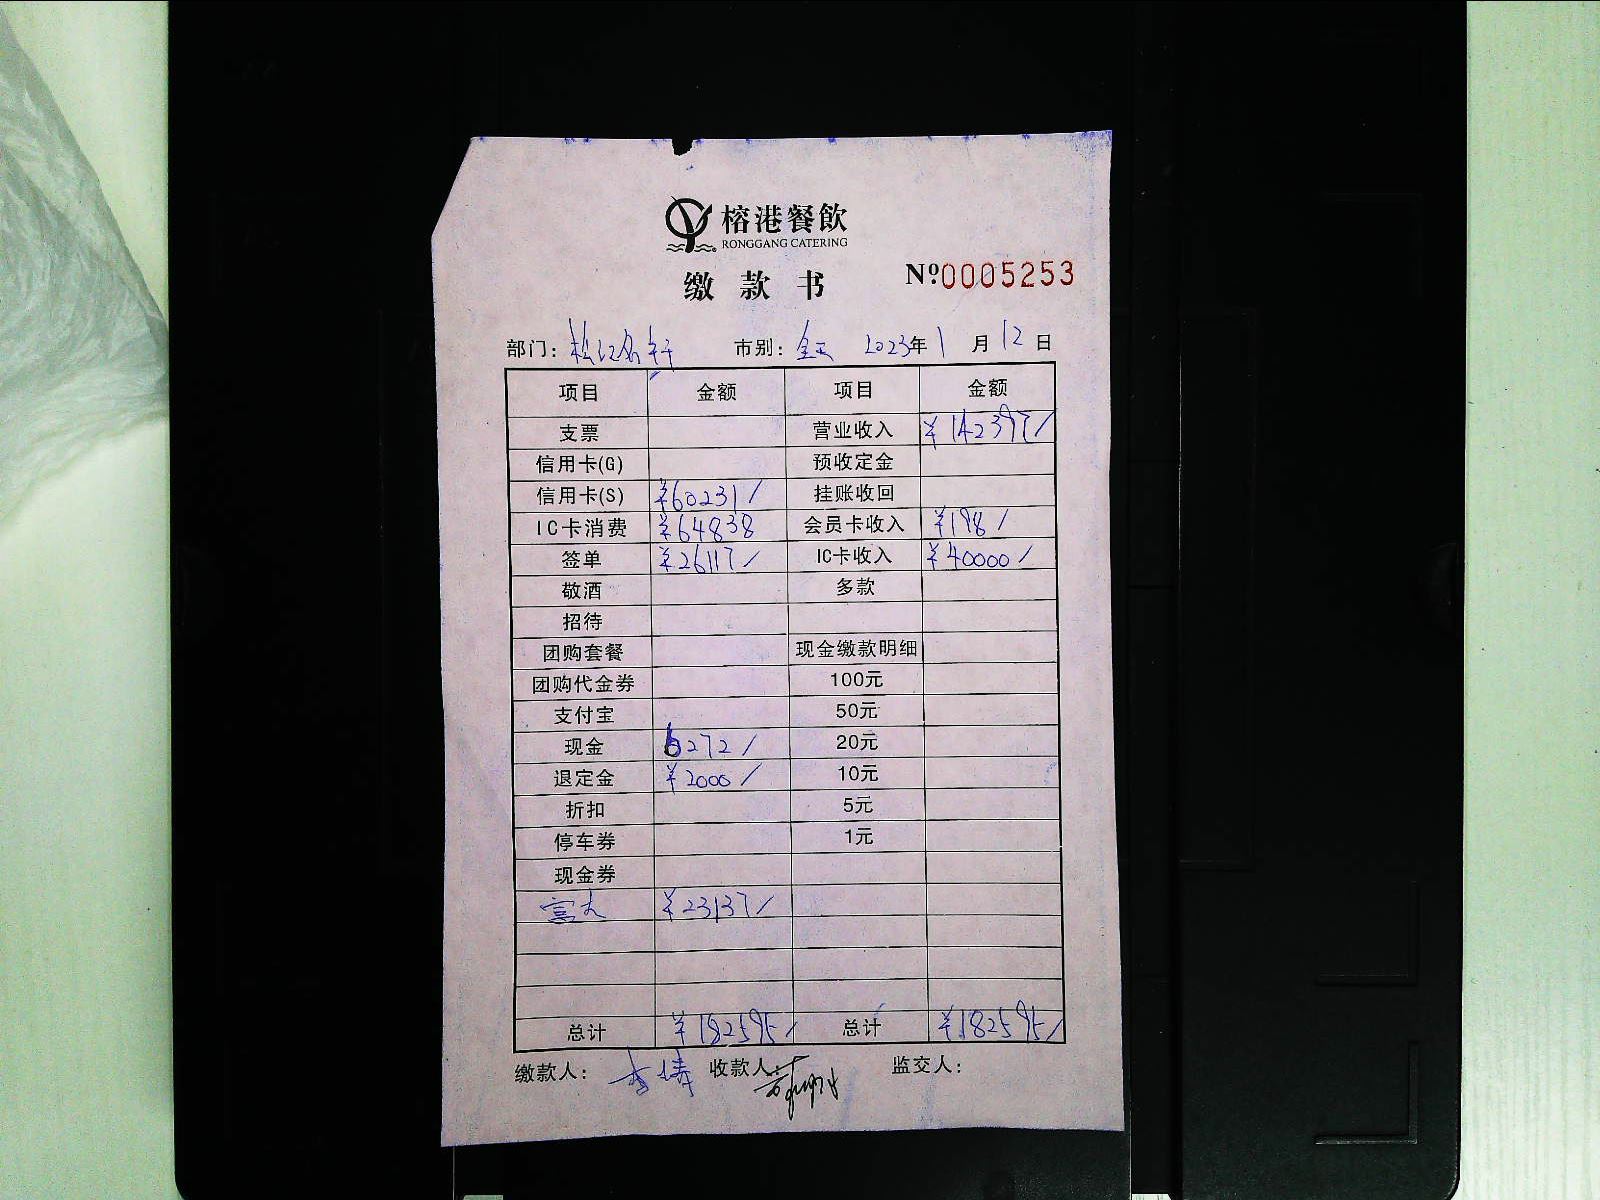 榕港餐飲
RONGGANG CATERING
缴款书 Nº0005253
部门: 松江名轩 市别: 全天 2023年1月12日
项目 金额 项目 金额
支票 营业收入 ¥142397/
信用卡(G) 预收定金
信用卡(S) ¥60231/ 挂账收回
IC卡消费 ¥64838 会员卡收入 ¥198/
签单 ¥26117/ IC卡收入 ¥40000/
敬酒 多款
招待
团购套餐 现金缴款明细
团购代金券 100元
支付宝 50元
现金 6272/ 20元
退定金 ¥2000/ 10元
折扣 5元
停车券 1元
现金券
富友 ¥23137/
总计 ¥182595/ 总计 ¥182595/
缴款人: 李 收款人: 监交人: